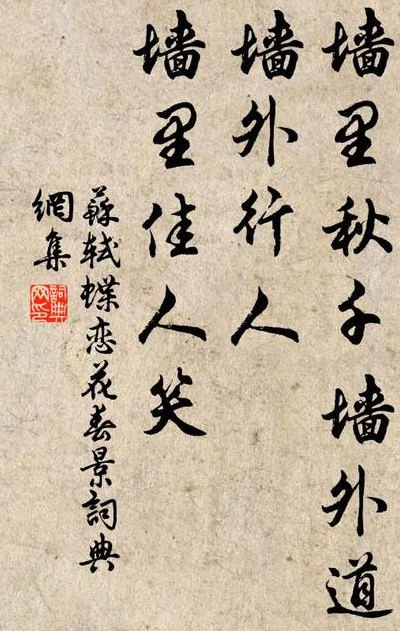 墙里秋千墙外道
墙外行人
墙里佳人笑
蘇軾蝶恋花春景詞典
網集
詞典
网印